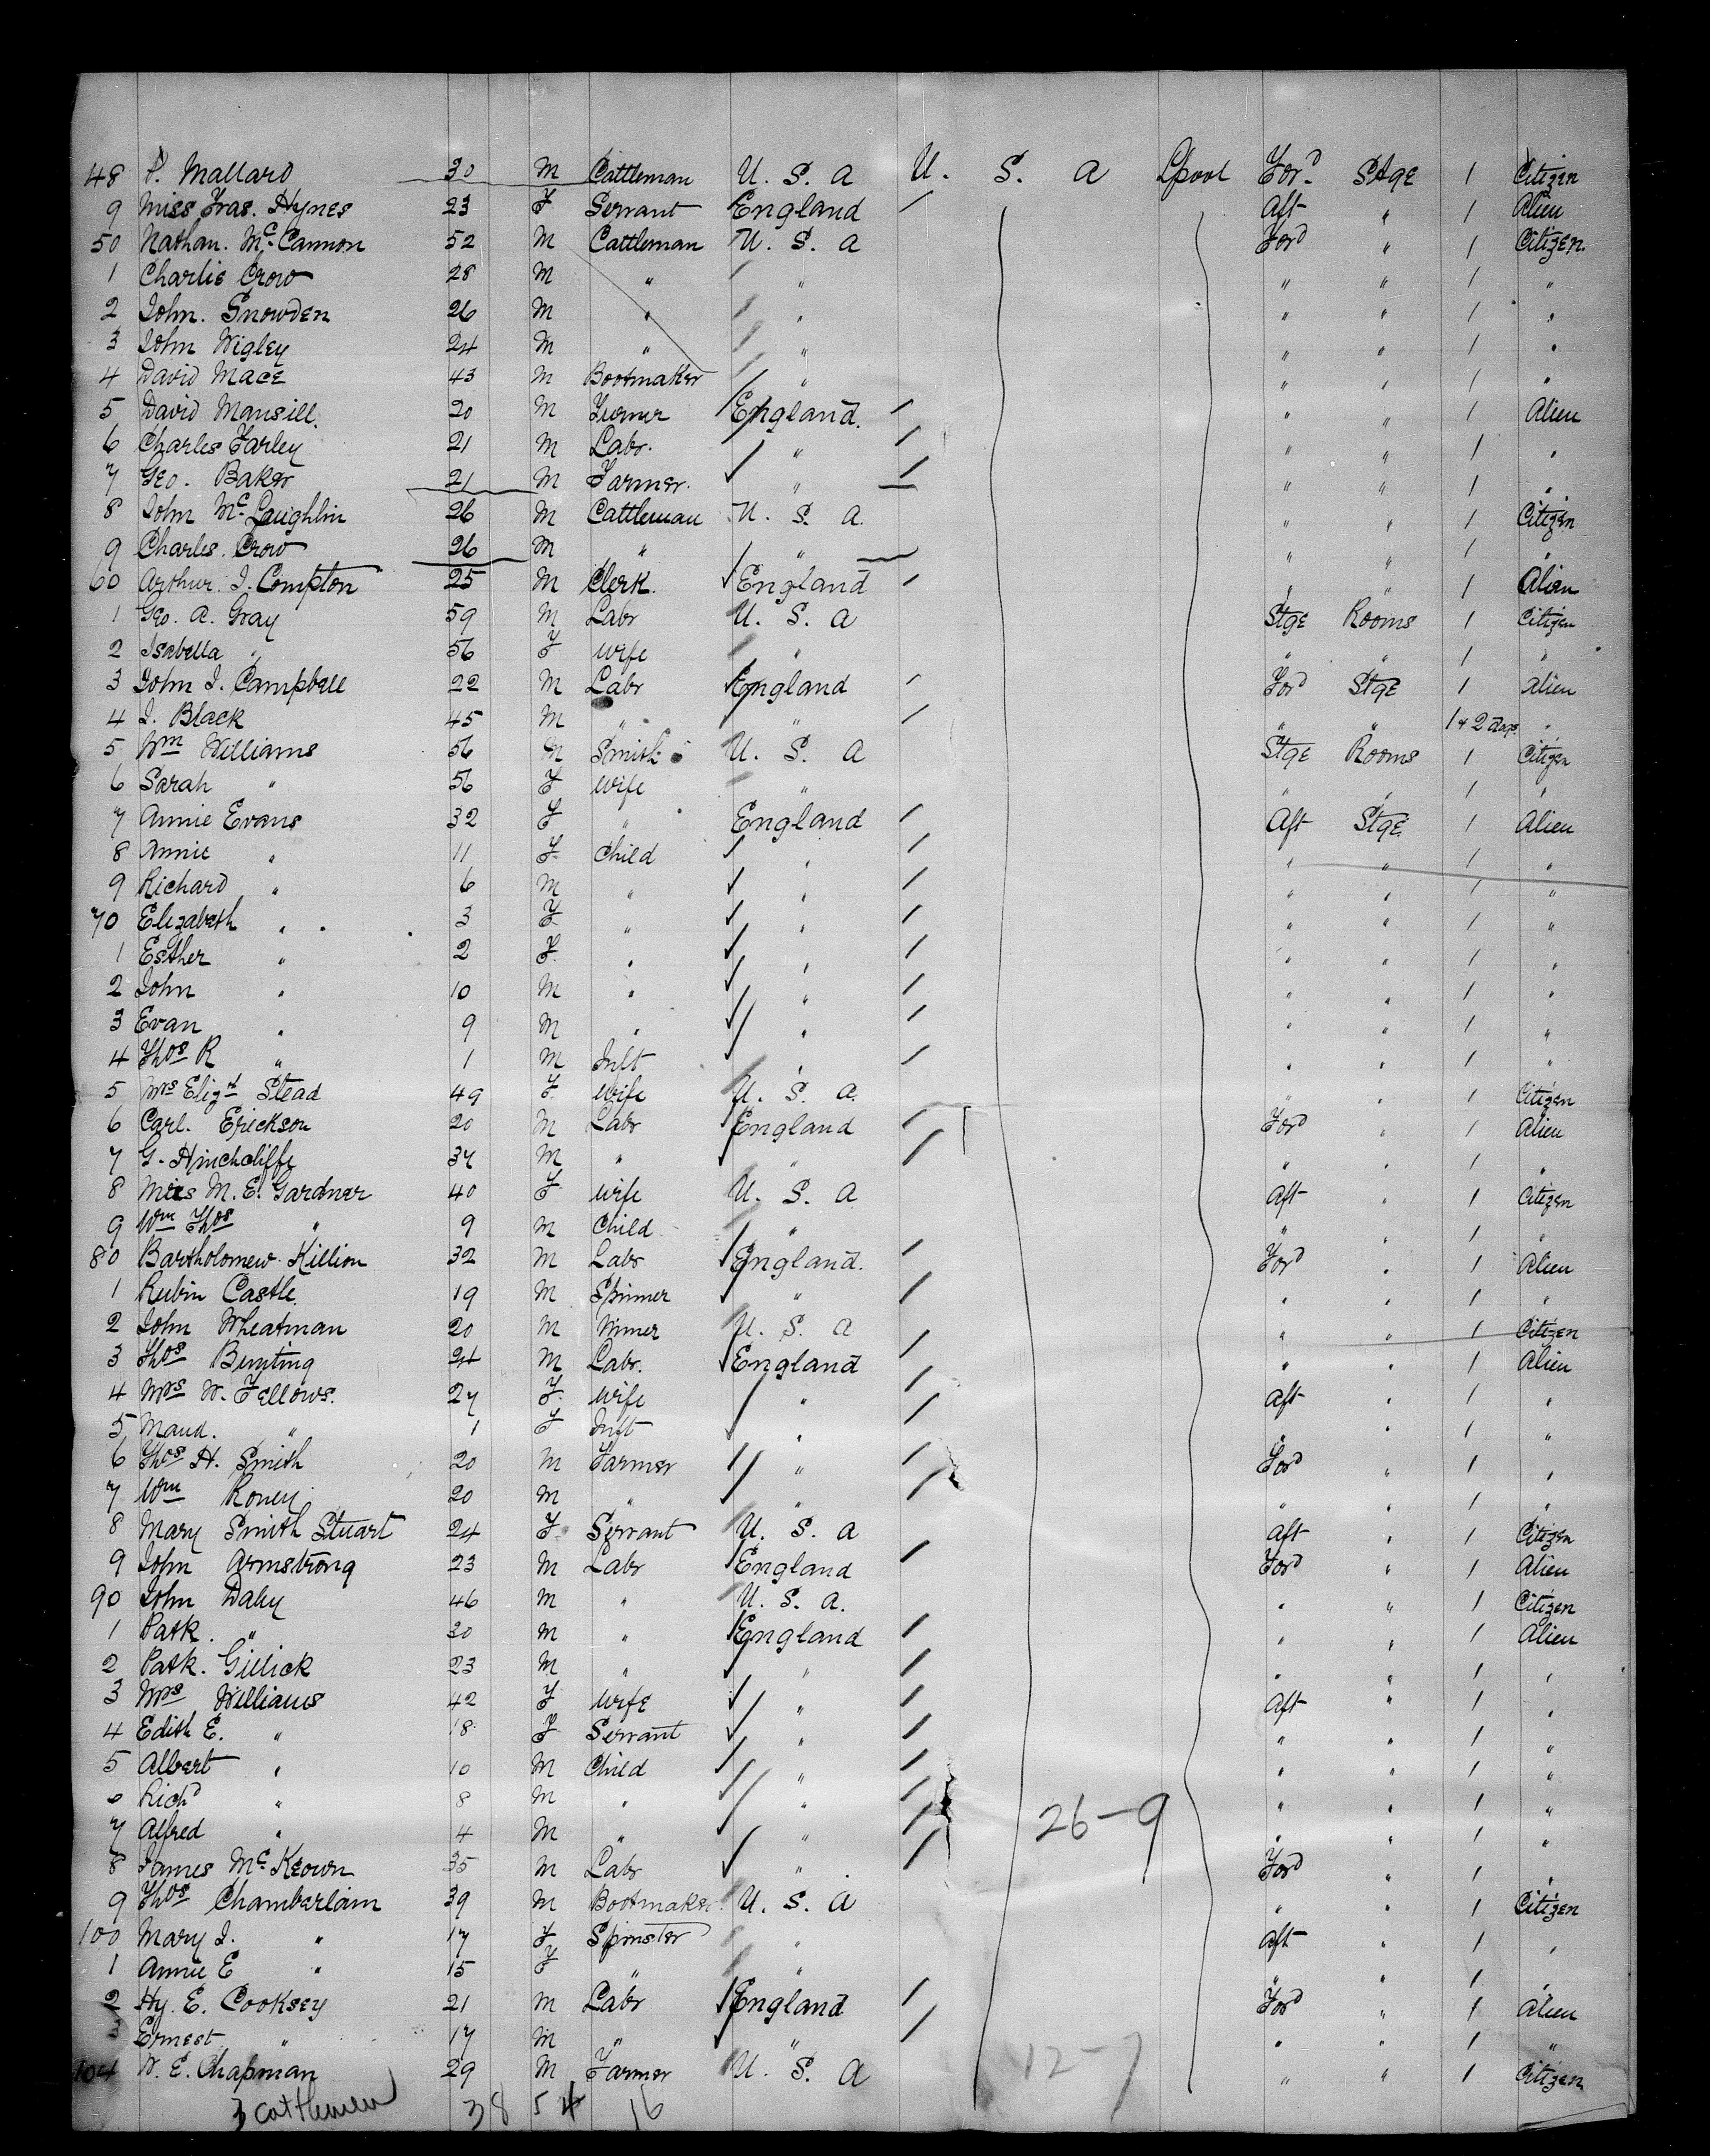 48 P. Mallard 30 M Cattleman U. S. A U. S. A Lpool For.d StgE 1 Citizen
9 Miss Fras. Hynes 23 F Servant England / Aft " 1 Alien
50 Nathan. McCannon 52 M Cattleman U. S. A Ford " 1 Citizen
1 Charlie Crow 28 M " " " " 1 "
2 John. Snowden 26 M " " " " 1 "
3 John Wigley 24 M " " " " 1 "
4 David Mace 43 M Bootmaker " " " 1 "
5 David Mansill. 20 M Turner England. / " " 1 Alien
6 Charles Farley 21 M Labr. " / " " 1 "
7 Geo. Baker 21 M Farmer. " / " " 1 "
8 John McLaughlin 26 M Cattleman U. S. A. " " 1 Citizen
9 Charles. Crow 26 M " " " " 1 "
60 Arthur. J. Compton 25 M Clerk. England / " " 1 Alien
1 Geo. A. Gray 59 M Labr U. S. A Stge Rooms 1 Citizen
2 Isabella " 56 F Wife " " " 1 "
3 John J. Campbell 22 M Labr England / Ford Stge 1 Alien
4 J. Black 45 M " " / " " 1 & 2 days "
5 Wm Williams 56 M Smith U. S. A Stge Rooms 1 Citizen
6 Sarah " 56 F Wife " " " 1 "
7 Annie Evans 32 F " England / Aft Stge 1 Alien
8 Annie " 11 F Child " / " " 1 "
9 Richard " 6 M " " / " " 1 "
70 Elizabeth " 3 F " " / " " 1 "
1 Esther " 2 F " " / " " 1 "
2 John " 10 M " " / " " 1 "
3 Evan " 9 M " " / " " 1 "
4 Thos R " 1 M Inft " / " " 1 "
5 Mrs Elizh Stead 49 F Wife U. S. A. " " 1 Citizen
6 Carl. Erickson 20 M Labr England / Ford " 1 Alien
7 G. Hinchcliffe 37 M " " / " " 1 "
8 Mrs M. E. Gardner 40 F Wife U. S. A Aft " 1 Citizen
9 Wm Thos " 9 M Child " " " 1 "
80 Bartholomew Killion 32 M Labr England. / Ford " 1 Alien
1 Rubin Castle. 19 M Spinner " / " " 1 "
2 John Wheatman 20 M Miner U. S. A " " 1 Citizen
3 Thos Bunting 24 M Labr. England / " " 1 Alien
4 Mrs W. Fellows. 27 F Wife " / Aft " 1 "
5 Maud. " 1 F Inft " / " " 1 "
6 Thos H. Smith 20 M Farmer " / Ford " 1 "
7 Wm Roney 20 M " " / " " 1 "
8 Mary Smith Stuart 24 F Servant U. S. A Aft " 1 Citizen
9 John Armstrong 23 M Labr England / Ford " 1 Alien
90 John Daly 46 M " U. S. A. " " 1 Citizen
1 Patk. " 30 M " England / " " 1 Alien
2 Patk. Gillick 23 M " " / " " 1 "
3 Mrs Williams 42 F Wife " / Aft " 1 "
4 Edith E. " 18 F Servant " / " " 1 "
5 Albert " 10 M Child " / " " 1 "
6 Richd " 8 M " " / " " 1 "
7 Alfred " 4 M " " / 26-9 " " 1 "
8 James McKeown 35 M Labr " / Ford " 1 "
9 Thos Chamberlain 39 M Bootmaker U. S. A " " 1 Citizen
100 Mary J. " 17 F Spinster " Aft " 1 "
1 Annie E " 15 F " " " " 1 "
2 Hy. E. Cooksey 21 M Labr England / Ford " 1 Alien
3 Ernest " 17 M " " / " " 1 "
104 W. E. Chapman 29 M Farmer U. S. A 12-7 " " 1 Citizen
3 cattlemen 38 54 16